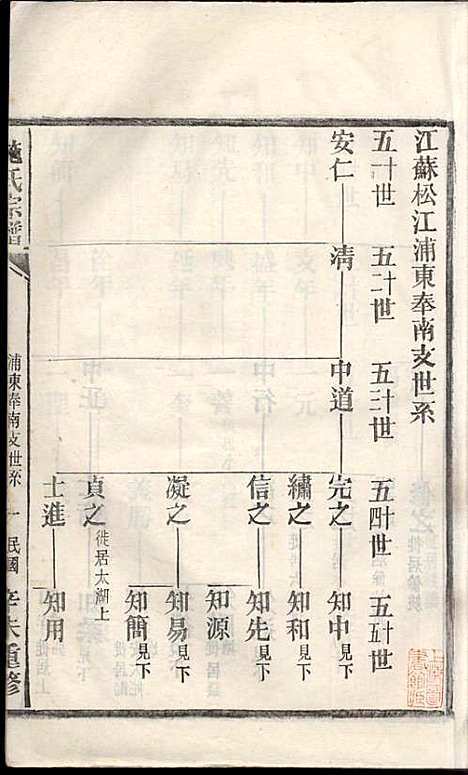 江蘇松江浦東奉南支世系
五十一世 五十二世 五十三世 五十四世 五十五世
安仁 清 中道 完之 知中見下
繡之 知和見下
信之 知先見下
知源
凝之 知易見下
知簡見下
貞之徙居太湖上
士進 知用
施氏宗譜 浦東奉南支世系 一 民國辛未重修